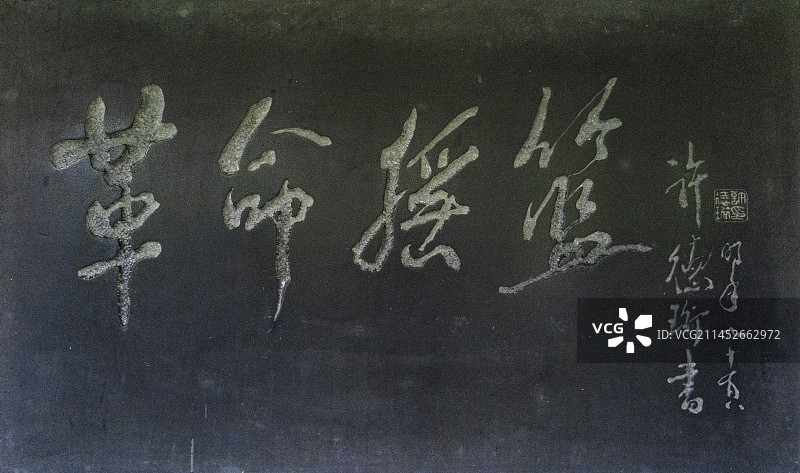 革命摇篮
许德珩书
VCG
ID: VCG211452662972